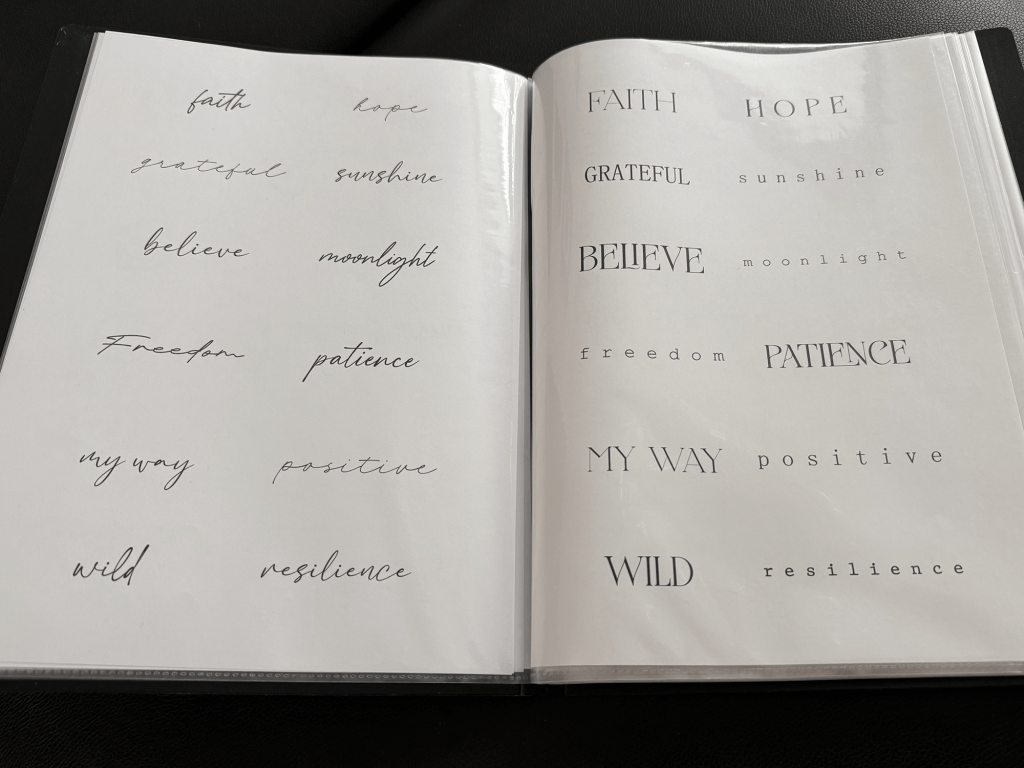 faith hope
grateful sunshine
believe moonlight
Freedom patience
my way positive
wild resilience
FAITH HOPE
GRATEFUL sunshine
BELIEVE moonlight
freedom PATIENCE
MY WAY positive
WILD resilience